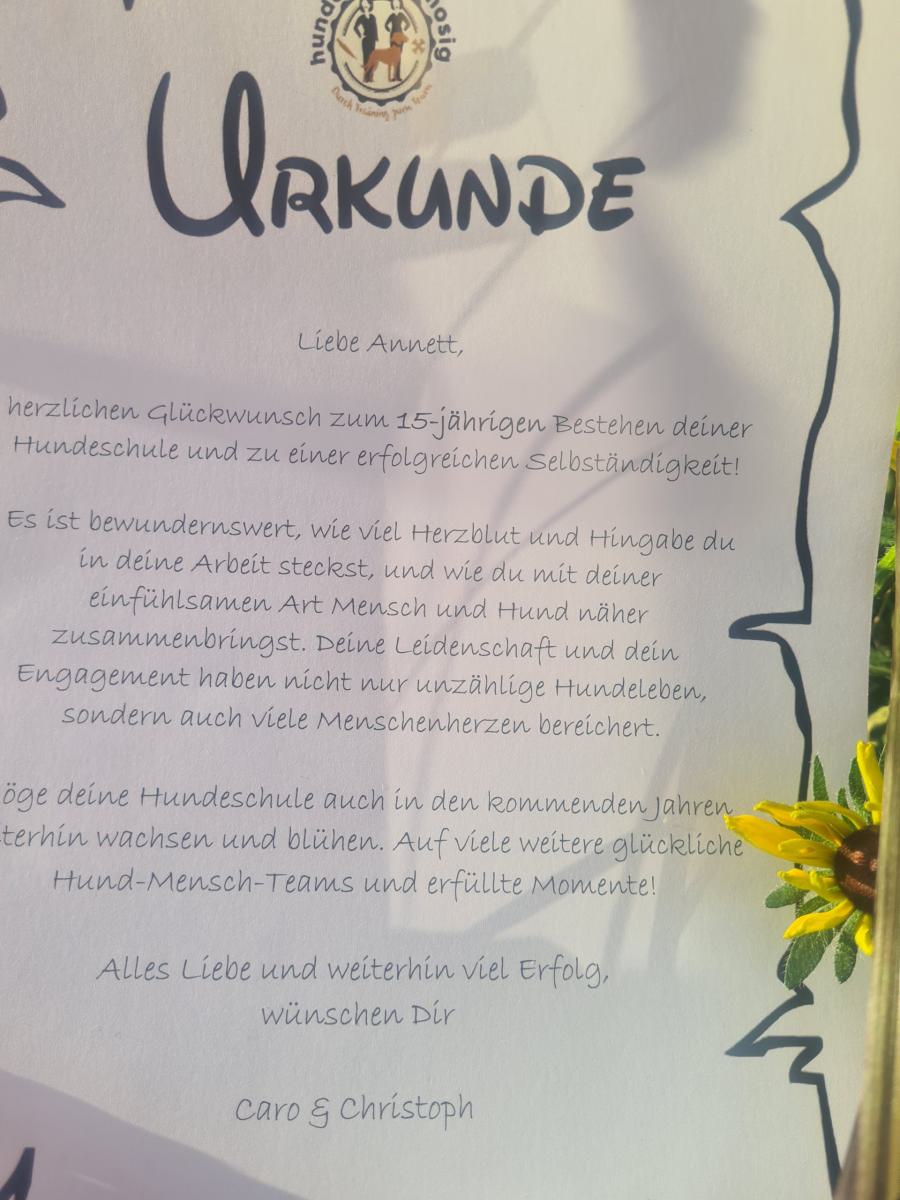 hund
nosig
Durch Training zum Team
URKUNDE
Liebe Annett,
herzlichen Glückwunsch zum 15-jährigen Bestehen deiner
Hundeschule und zu einer erfolgreichen Selbständigkeit!
Es ist bewundernswert, wie viel Herzblut und Hingabe du
in deine Arbeit steckst, und wie du mit deiner
einfühlsamen Art Mensch und Hund näher
zusammenbringst. Deine Leidenschaft und dein
Engagement haben nicht nur unzählige Hundeleben,
sondern auch viele Menschenherzen bereichert.
öge deine Hundeschule auch in den kommenden Jahren
terhin wachsen und blühen. Auf viele weitere glückliche
Hund-Mensch-Teams und erfüllte Momente!
Alles Liebe und weiterhin viel Erfolg,
wünschen Dir
Caro & Christoph